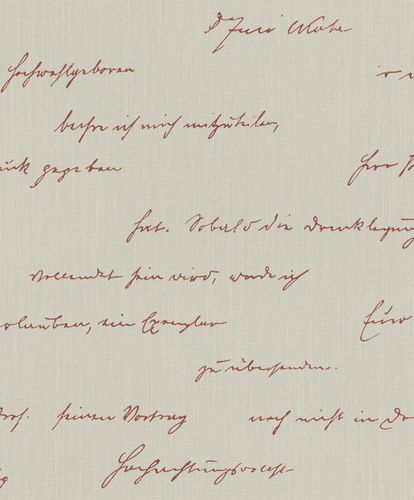 Hochwohlgeboren
beehre ich mich mitzuteilen,
gegeben
Herr
hat. Sobald die Drucklegung
vollendet sein wird, werde ich
erlauben, ein Exemplar Euer
zu übersenden.
Prof. seinen Vortrag noch nicht in
Hochachtungsvollst